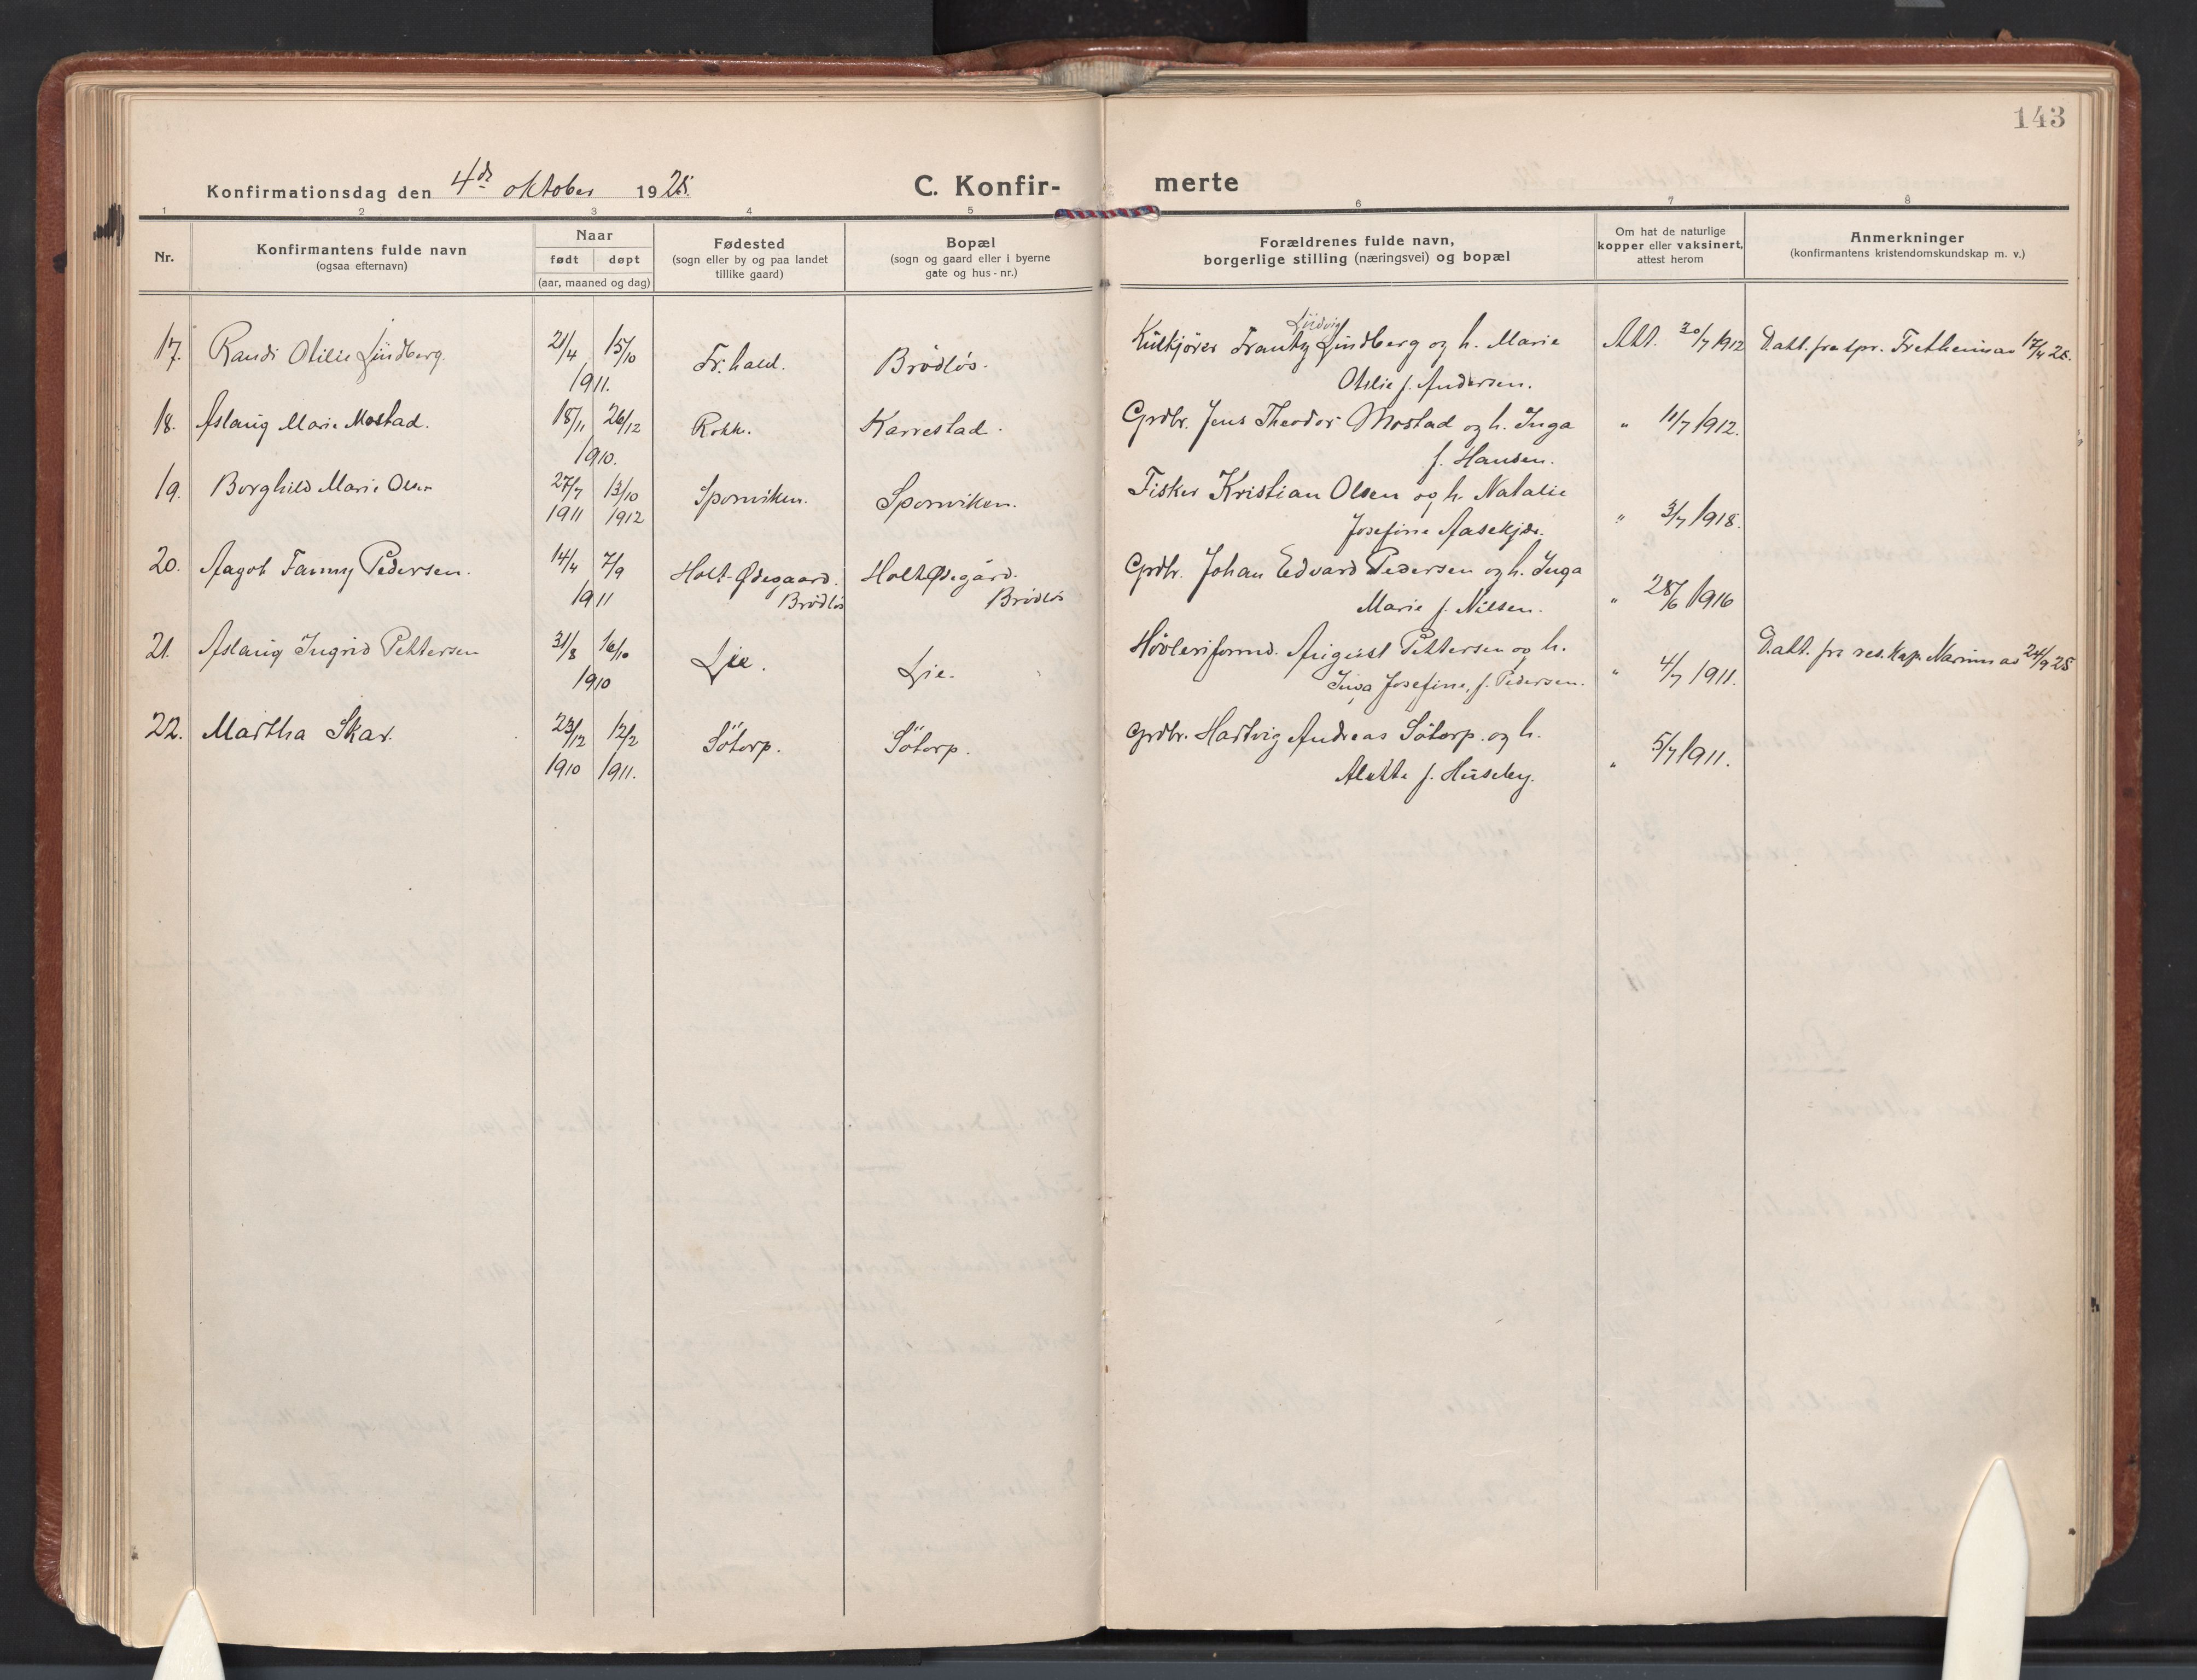 143
Konfirmationsdag den 4de oktober 1925.
C. Konfir-
merte
1 2 3 4 5 6 7 8
Nr.
Konfirmantens fulde navn
(ogsaa efternavn)
Naar
født døpt
(aar, maaned og dag)
Fødested
(sogn eller by og paa landet
tillike gaard)
Bopæl
(sogn og gaard eller i byerne
gate og hus-nr.)
Forældrenes fulde navn,
borgerlige stilling (næringsvei) og bopæl
Om hat de naturlige
kopper eller vaksinert,
attest herom
Anmerkninger
(konfirmantens kristendomskundskap m. v.)
Ludvig
17. Randi Otilie Lindberg. 21/4 15/10 Fr.hald. Brödlös. Kulkjører Frantz Lindberg og h. Marie Att. 30/7 1912 D.att. fra spr. Fretheim as 17/4 25.
1911. Otilie f. Andersen.
18. Aslaug Marie Mostad. 18/11 26/12 Rokke. Karrestad. Grdbr. Jens Theodor Mostad og h. Inga " 11/7 1912.
1910. f. Hansen.
19. Borghild Marie Olsen 27/7 13/10 Sponviken. Sponviken. Fisker Kristian Olsen og h. Natalie
1911 1912 Josefine Aasekjær. " 3/7 1918.
20. Aagot Fanny Pedersen. 14/4 7/9 Holt-Ødegaard. Holt Ødegård. Grdbr. Johan Edvard Pedersen og h. Inga
1911 Brödlös Brödlös Marie f. Nilsen. " 28/6 1916
21. Aslaug Ingrid Pettersen 31/8 16/10 Lie. Lie. Høvleriformd. August Pettersen og h. D.att. fra res. kap. Narum as 24/9 25
1910 Inga Josefine, f. Pedersen. " 4/7 1911.
22. Martha Skar. 23/12 12/2 Sötorp. Sötorp. Grdbr. Hartvig Andreas Sötorp og h.
1910 1911. Alette f. Huseby. " 5/7 1911.